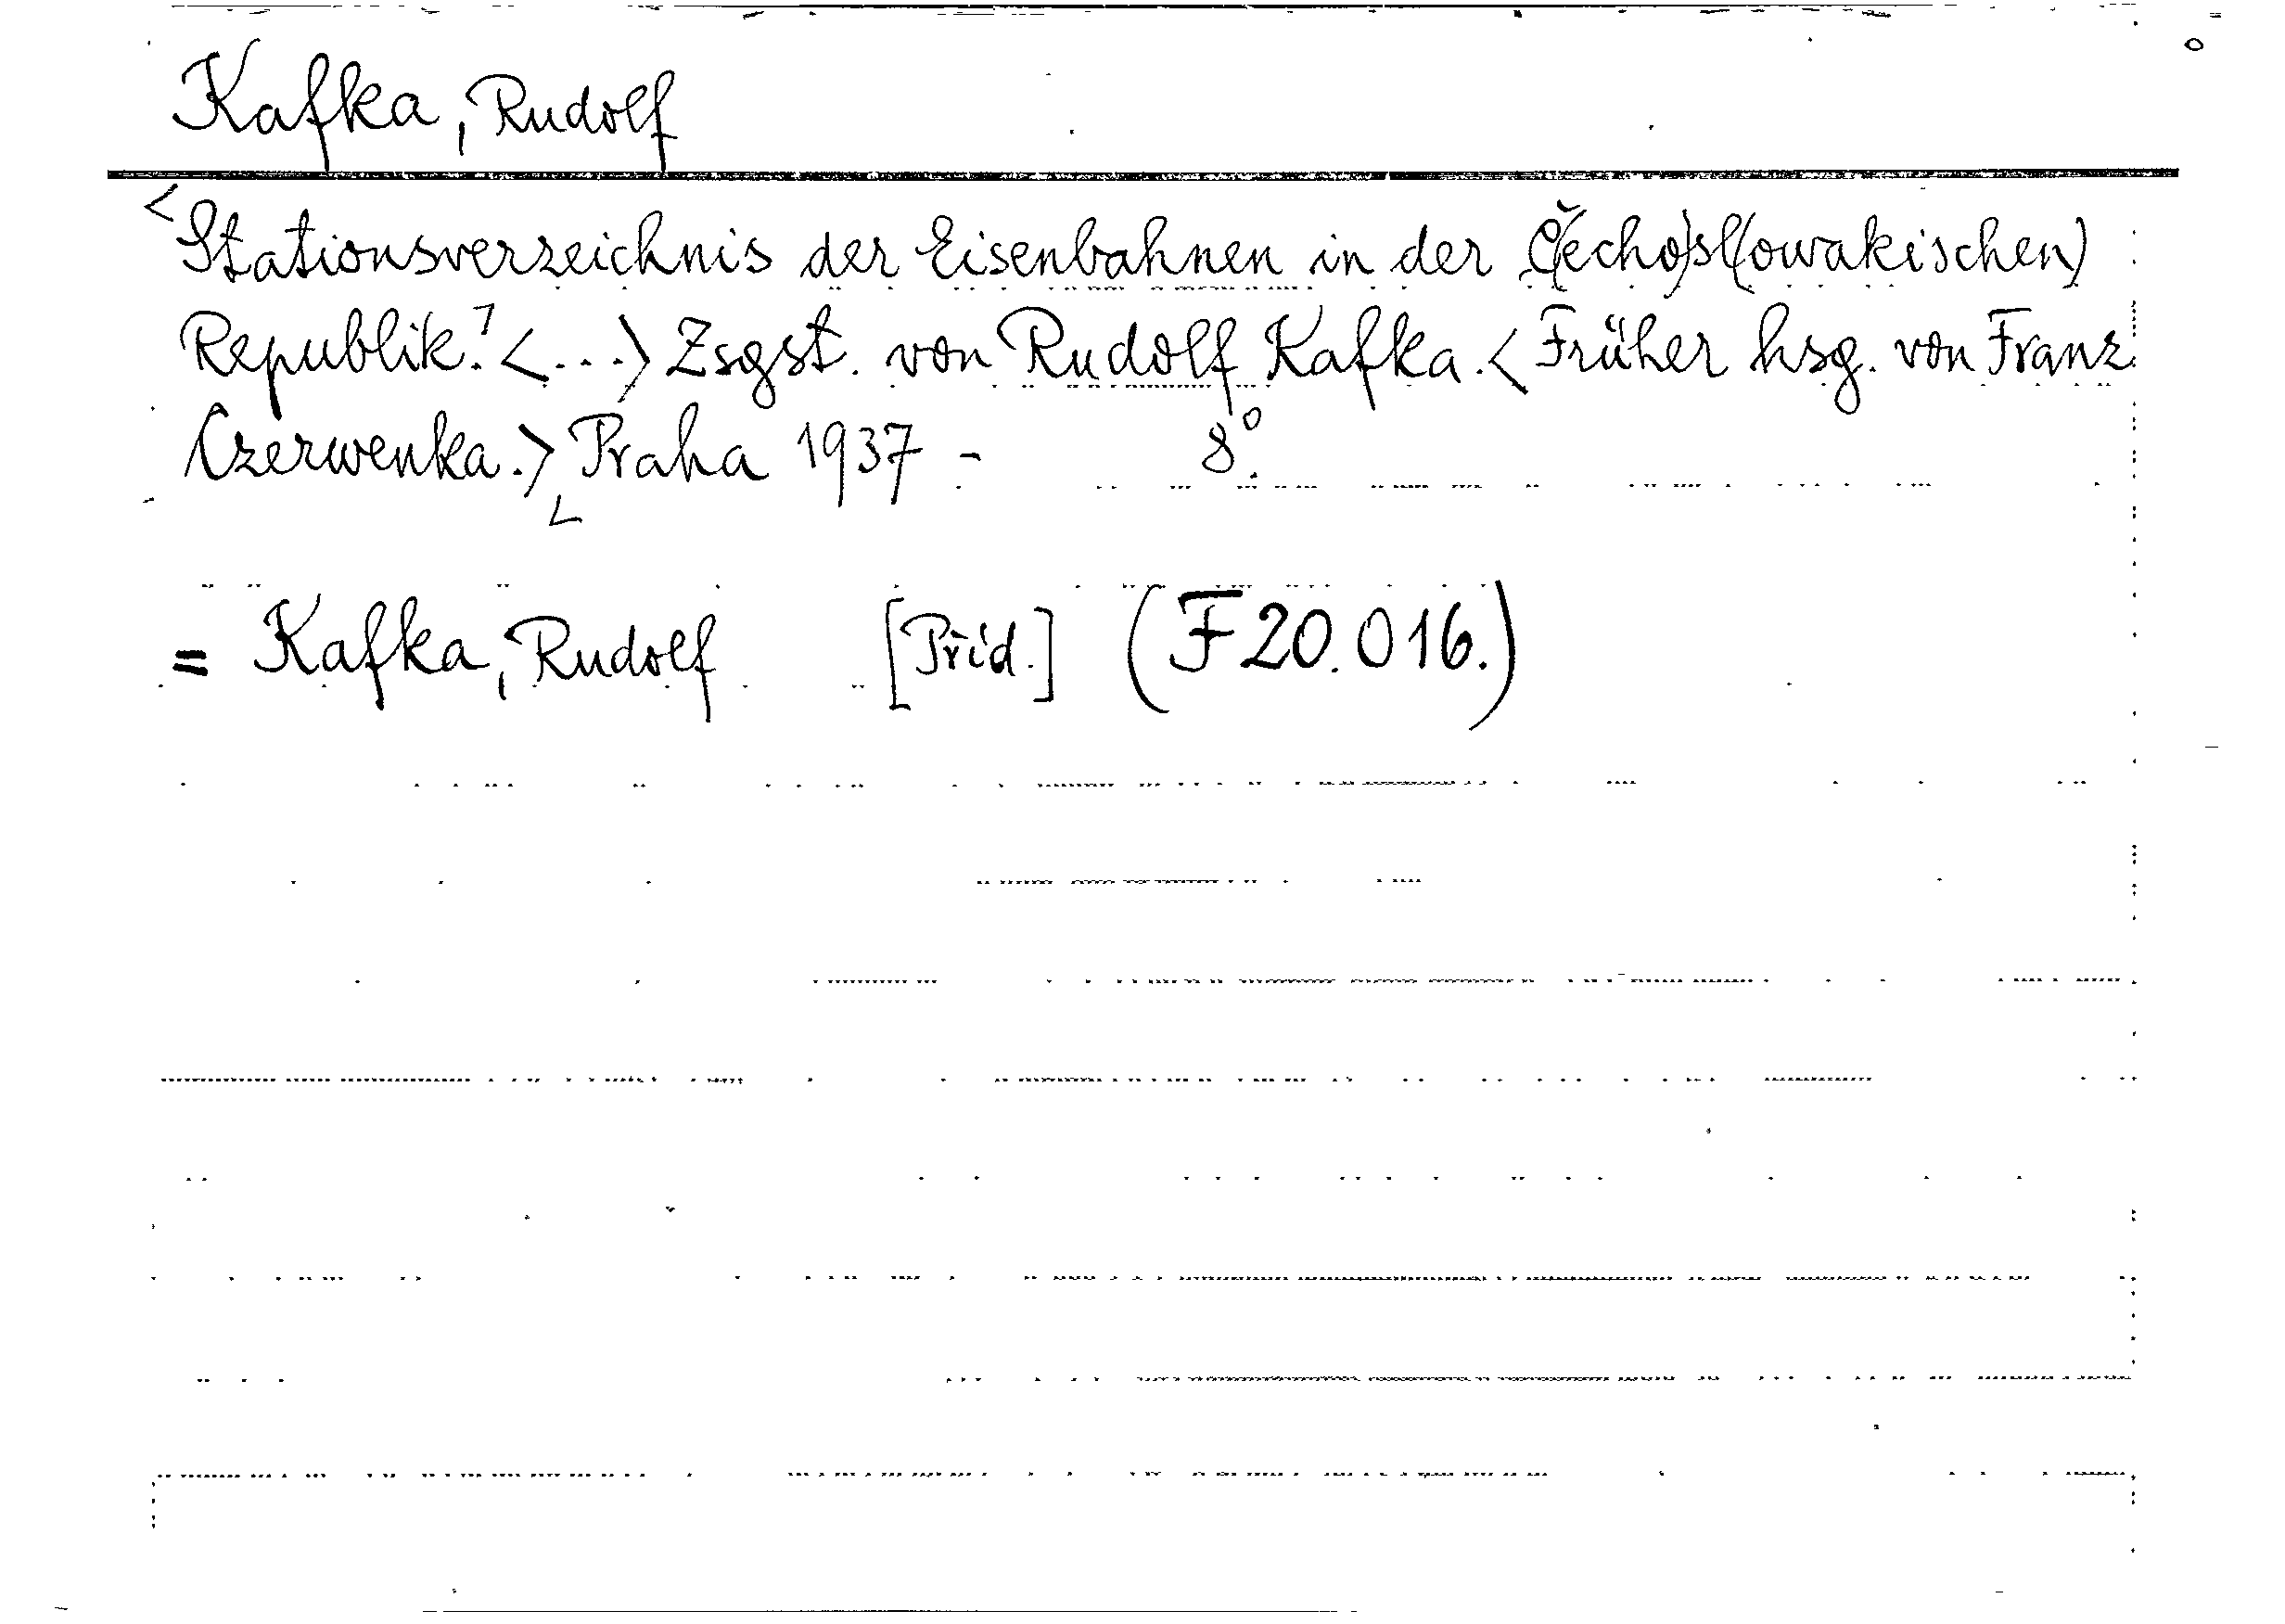 Kafka, Rudolf
<Stationsverzeichnis der Eisenbahnen in der Č(echo)sl(owakischen)
Republik.> <...> Zsgst. von Rudolf Kafka. <Früher hsg. von Franz
Czerwenka.> Praha 1937 - 8°.
= Kafka, Rudolf [Příd.] (F 20.016.)